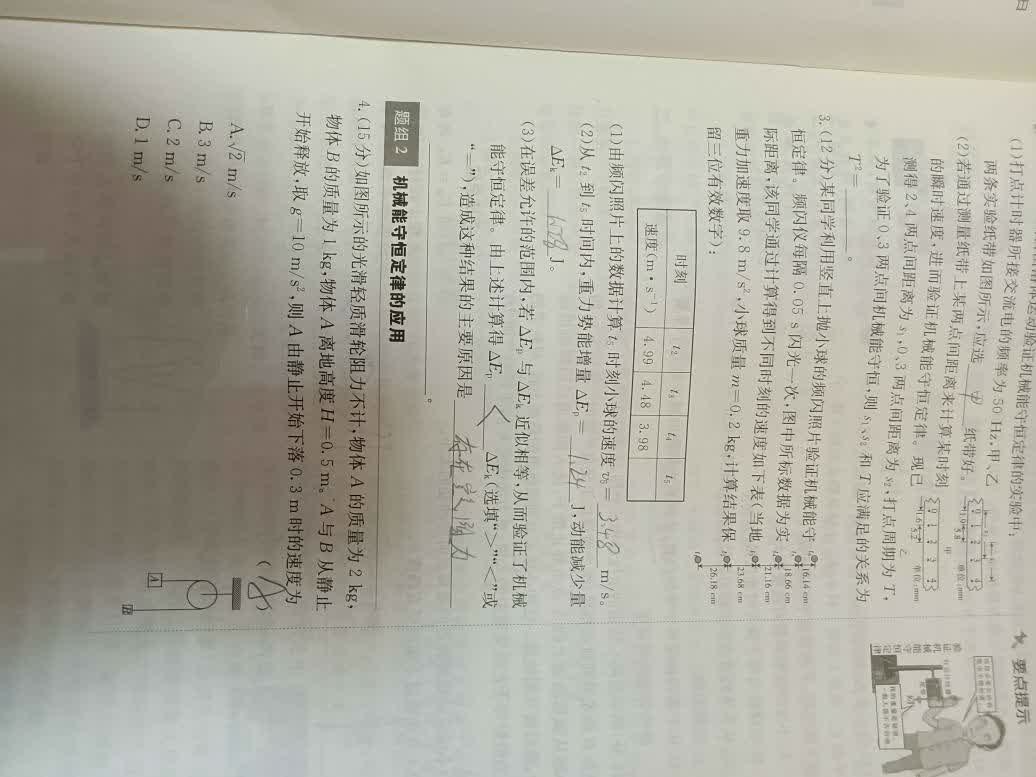 (1)打点计时器所接交流电的频率为50 Hz,甲、乙
两条实验纸带如图所示,应选 甲 纸带好。
(2)若通过测量纸带上某两点间距离来计算某时刻
的瞬时速度,进而验证机械能守恒定律。现已
测得2、4两点间距离为s₁,0、3两点间距离为s₂,打点周期为T,
为了验证0、3两点间机械能守恒,则s₁、s₂和T应满足的关系为
T²=________。
0 1 2 3 4
甲 单位:mm
0 1 2 3 4
乙 单位:mm
3.(12分)某同学利用竖直上抛小球的频闪照片验证机械能守
恒定律。频闪仪每隔0.05 s闪光一次,图中所标数据为实
际距离,该同学通过计算得到不同时刻的速度如下表(当地
重力加速度取9.8 m/s²,小球质量m=0.2 kg,计算结果保
留三位有效数字):
16.14 cm
18.66 cm
21.16 cm
23.68 cm
26.18 cm
时刻 t₂ t₃ t₄ t₅
速度(m·s⁻¹) 4.99 4.48 3.98
(1)由频闪照片上的数据计算t₅时刻小球的速度v₅= 3.48 m/s。
(2)从t₂到t₅时间内,重力势能增量ΔEₚ= 1.24 J,动能减少量
ΔEₖ= J。
(3)在误差允许的范围内,若ΔEₚ与ΔEₖ近似相等,从而验证了机械
能守恒定律。由上述计算得ΔEₚ < ΔEₖ(选填“>”“<”或
“=”),造成这种结果的主要原因是 存在 力
________。
题组2 机械能守恒定律的应用
4.(15分)如图所示的光滑轻质滑轮阻力不计,物体A的质量为2 kg,
物体B的质量为1 kg,物体A离地高度H=0.5 m。A与B从静止
开始释放,取g=10 m/s²,则A由静止开始下落0.3 m时的速度为
(
A.√2 m/s
B.3 m/s
C.2 m/s
D.1 m/s
A
B
要点提示
验证机械能守恒定律